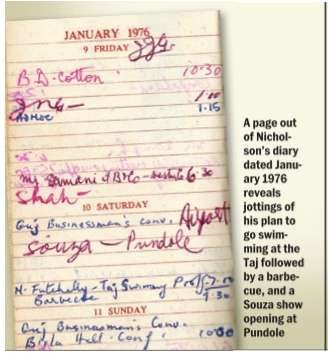 JANUARY 1976
9 FRIDAY
B.D. Cotton 10-30
1.00
ADHOC 1-15
Mr Damani & B & Co
Shah
10 SATURDAY
Guj Businessman's Conv. Airport
Souza - Pundole
N. Futehally - Taj Swimming Pool 7-00
Barbecue 7.30
11 SUNDAY
Guj Businessman's Conv.
Birla Hall Conf. 10:00
A page out
of Nichol-
son's diary
dated Janu-
ary 1976
reveals
jottings of
his plan to
go swim-
ming at the
Taj followed
by a barbe-
cue, and a
Souza show
opening at
Pundole